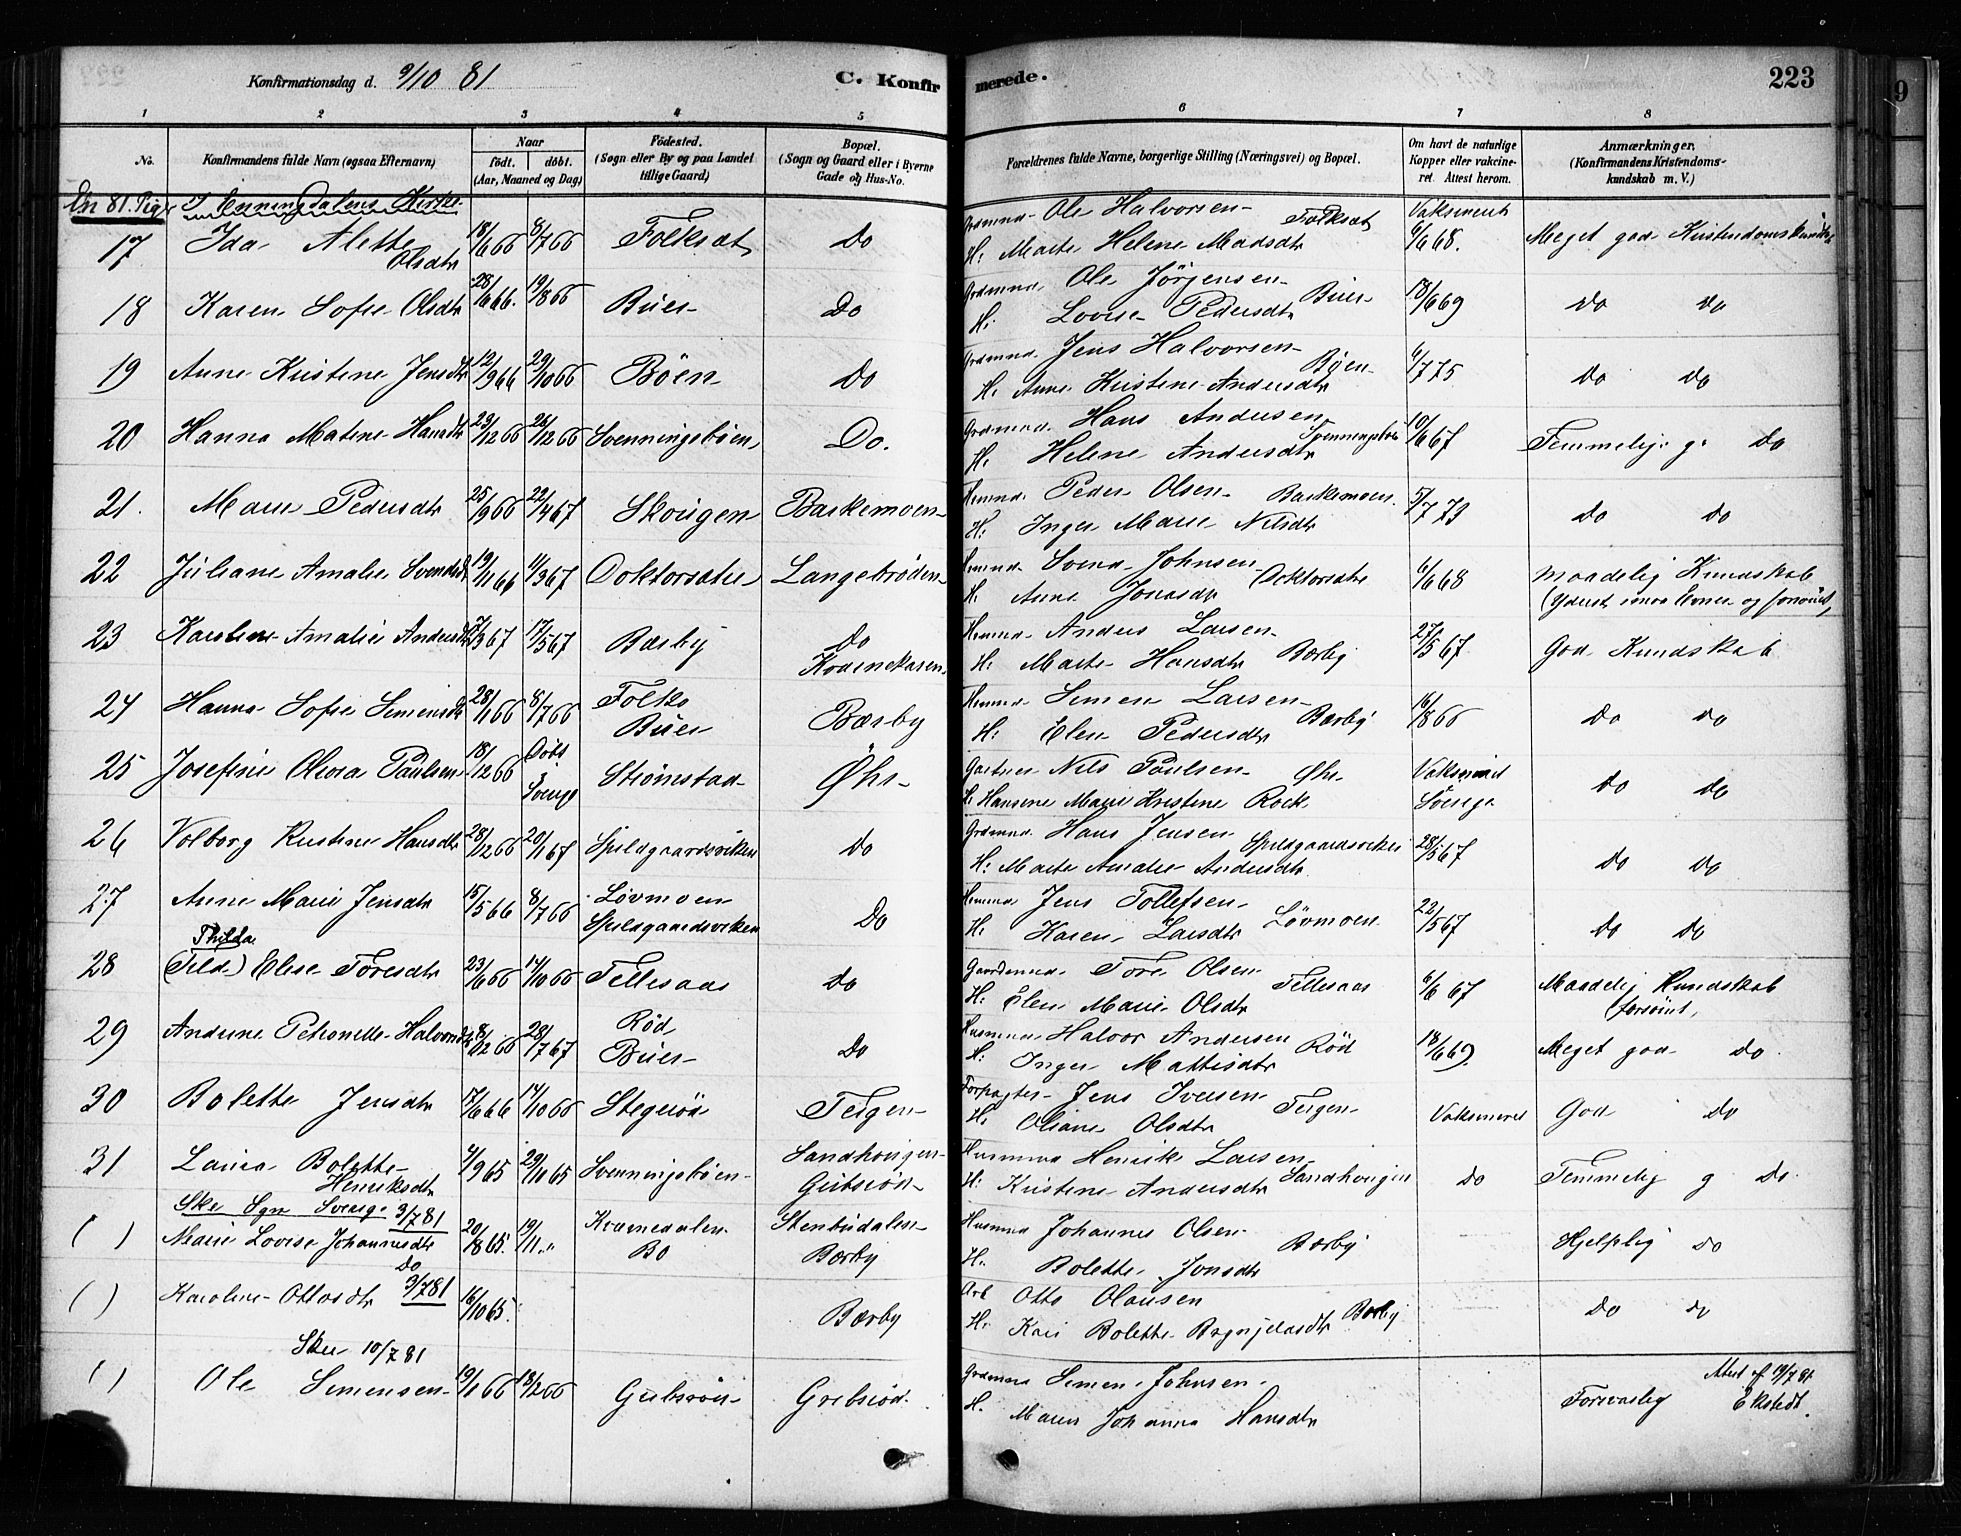 Konfirmationsdag d. 9/10 81
C. Konfir
merede.
223
1 2 3 4 5 6 7 8
No.
Konfirmandens fulde Navn (ogsaa Efternavn)
Naar
födt. döbt.
(Aar, Maaned og Dag)
Födested.
(Sogn eller By og paa Landet
tillige Gaard)
Bopæl.
(Sogn og Gaard eller i Byerne
Gade og Hus-No.
Forældrenes fulde Navne, borgerlige Stilling (Næringsvei) og Bopæl.
Om havt de naturlige
Kopper eller vakcine-
ret. Attest herom.
Anmærkninger.
(Konfirmandens Kristendoms-
kundskab m. V.)
81. Piger I Enningdalens Kirke
17 Ida Alette Olsdtr 18/6 66 8/7 66 Folksat Do Grdmnd. Ole Halvorsen Folksat Vaksineret 6/6 68. Meget god Kristendomskundskab
H: Marte Helene Madsdtr
18 Karen Sofie Olsdtr 28/6 66. 19/8 66 Buer Do Grdmnd. Ole Jörgensen Buer 18/6 69 Do Do
H: Lovise Pedersdtr
19 Anne Kristine Jensdtr 12/9 66 29/10 66 Böen Do Grdmnd. Jens Halvorsen Böen 6/7 75 Do Do
H. Anne Kristine Andersdtr
20 Hanna Matine Hansdtr 23/12 66 26/12 66 Svenningsbøen Do. Grdmnd. Hans Andersen Svenningsbøen 10/6 67 Temmelig g. Do
H: Helene Andersdtr
21. Marie Pedersdtr 25/9 66 22/4 67 Skougen Barkemoen Husmnd. Peder Olsen Barkemoen. 5/7 73 Do Do
H: Inger Marie Nilsdtr
22 Juliane Amalie Svendsdtr 19/11 66 11/3 67 Doktorsatre Langebrøden Husmnd. Svend Johnsen Doktorsatre 6/6 68 Maadelig Kundskab
H. Anne Jonasdtr (yderst smaa Evner og forsömt)
23 Karoline Amalie Andersdtr 7/3 67 17/5 67 Bærby Do Husmnd. Anders Larsen Bærby 27/5 67 God Kundskab
Kvarnekasen H: Marte Hansdtr
24 Hanna Sofie Simensdtr 28/1 66 8/7 66 Folks Buer Bærby Husmnd. Simen Larsen Bærby 16/8 66 Do Do
H: Elen Pedersdtr
25 Josefine Olivia Paulsen 18/12 66 Döbt i Sverige Strömstad Øhr Gartner Nils Paulsen Øhr Vaksineret Sverige Do Do
H: Hansine Marie Kristine Rock
26 Volborg Kristine Hansdtr 28/12 66 20/1 67 Spildgaardsviken Do Grdmnd. Hans Jensen Spildgaardsviken 28/5 67 Do Do
H: Marte Amalie Andersdtr
27 Anne Marie Jensdtr 15/5 66 8/7 66 Lövmoen Do Husmnd Jens Tollefsen Lövmoen 22/5 67 Do Do
Spildgaardsviken H: Karen Larsdtr
Thilda
28 (Tild.) Elise Toresdtr 23/6 66 14/10 66 Tellesaas Do Gaardmnd. Tore Olsen Tellesaas 6/6 67 Maadelig Kundskab
H: Elen Marie Olsdtr (forsömt)
29 Andrine Petronelle Halvorsdtr 8/12 66 28/7 67 Röd Buer Do Husmnd Halvor Andersen Röd 18/6 69. Meget god Do
H: Inger Mattisdtr
30 Bolette Jensdtr 17/6 66 14/10 66 Stegeröd Teigen Forpagter Jens Iversen Teigen Vaksineret God Do
H: Oliane Olsdtr
31 Laura Bolette Henriksdtr 4/9 65 29/10 65 Svenningsbøen Sandhougen Husmnd Henrik Larsen Sandhougen Do Temmelig g Do
Gribsröd H: Kristine Andersdtr
Ske Sgn Sverige 3/7 81
( ) Marie Lovise Johannesdtr 20/8 65. 19/11 „ Kvarnedalen Bo Stenbudalen Bærby Husmnd Johannes Olsen Bærby Hjelplig Do
H. Bolette Jonsdtr
Do
( ) Karoline Ottosdtr 3/7 81 16/10 65. Bærby Arb Otto Olausen Bærby Do Do
H: Kari Bolette
Skee 10/7 81
( ) Ole Simensen 19/1 66 18/2 66 Gribsröd Gribsröd. Grdmnd Simen Johnsen Forsvarlig Attest af 19/7 81 Ekstedt.
H. Maren Johanna Hansdtr